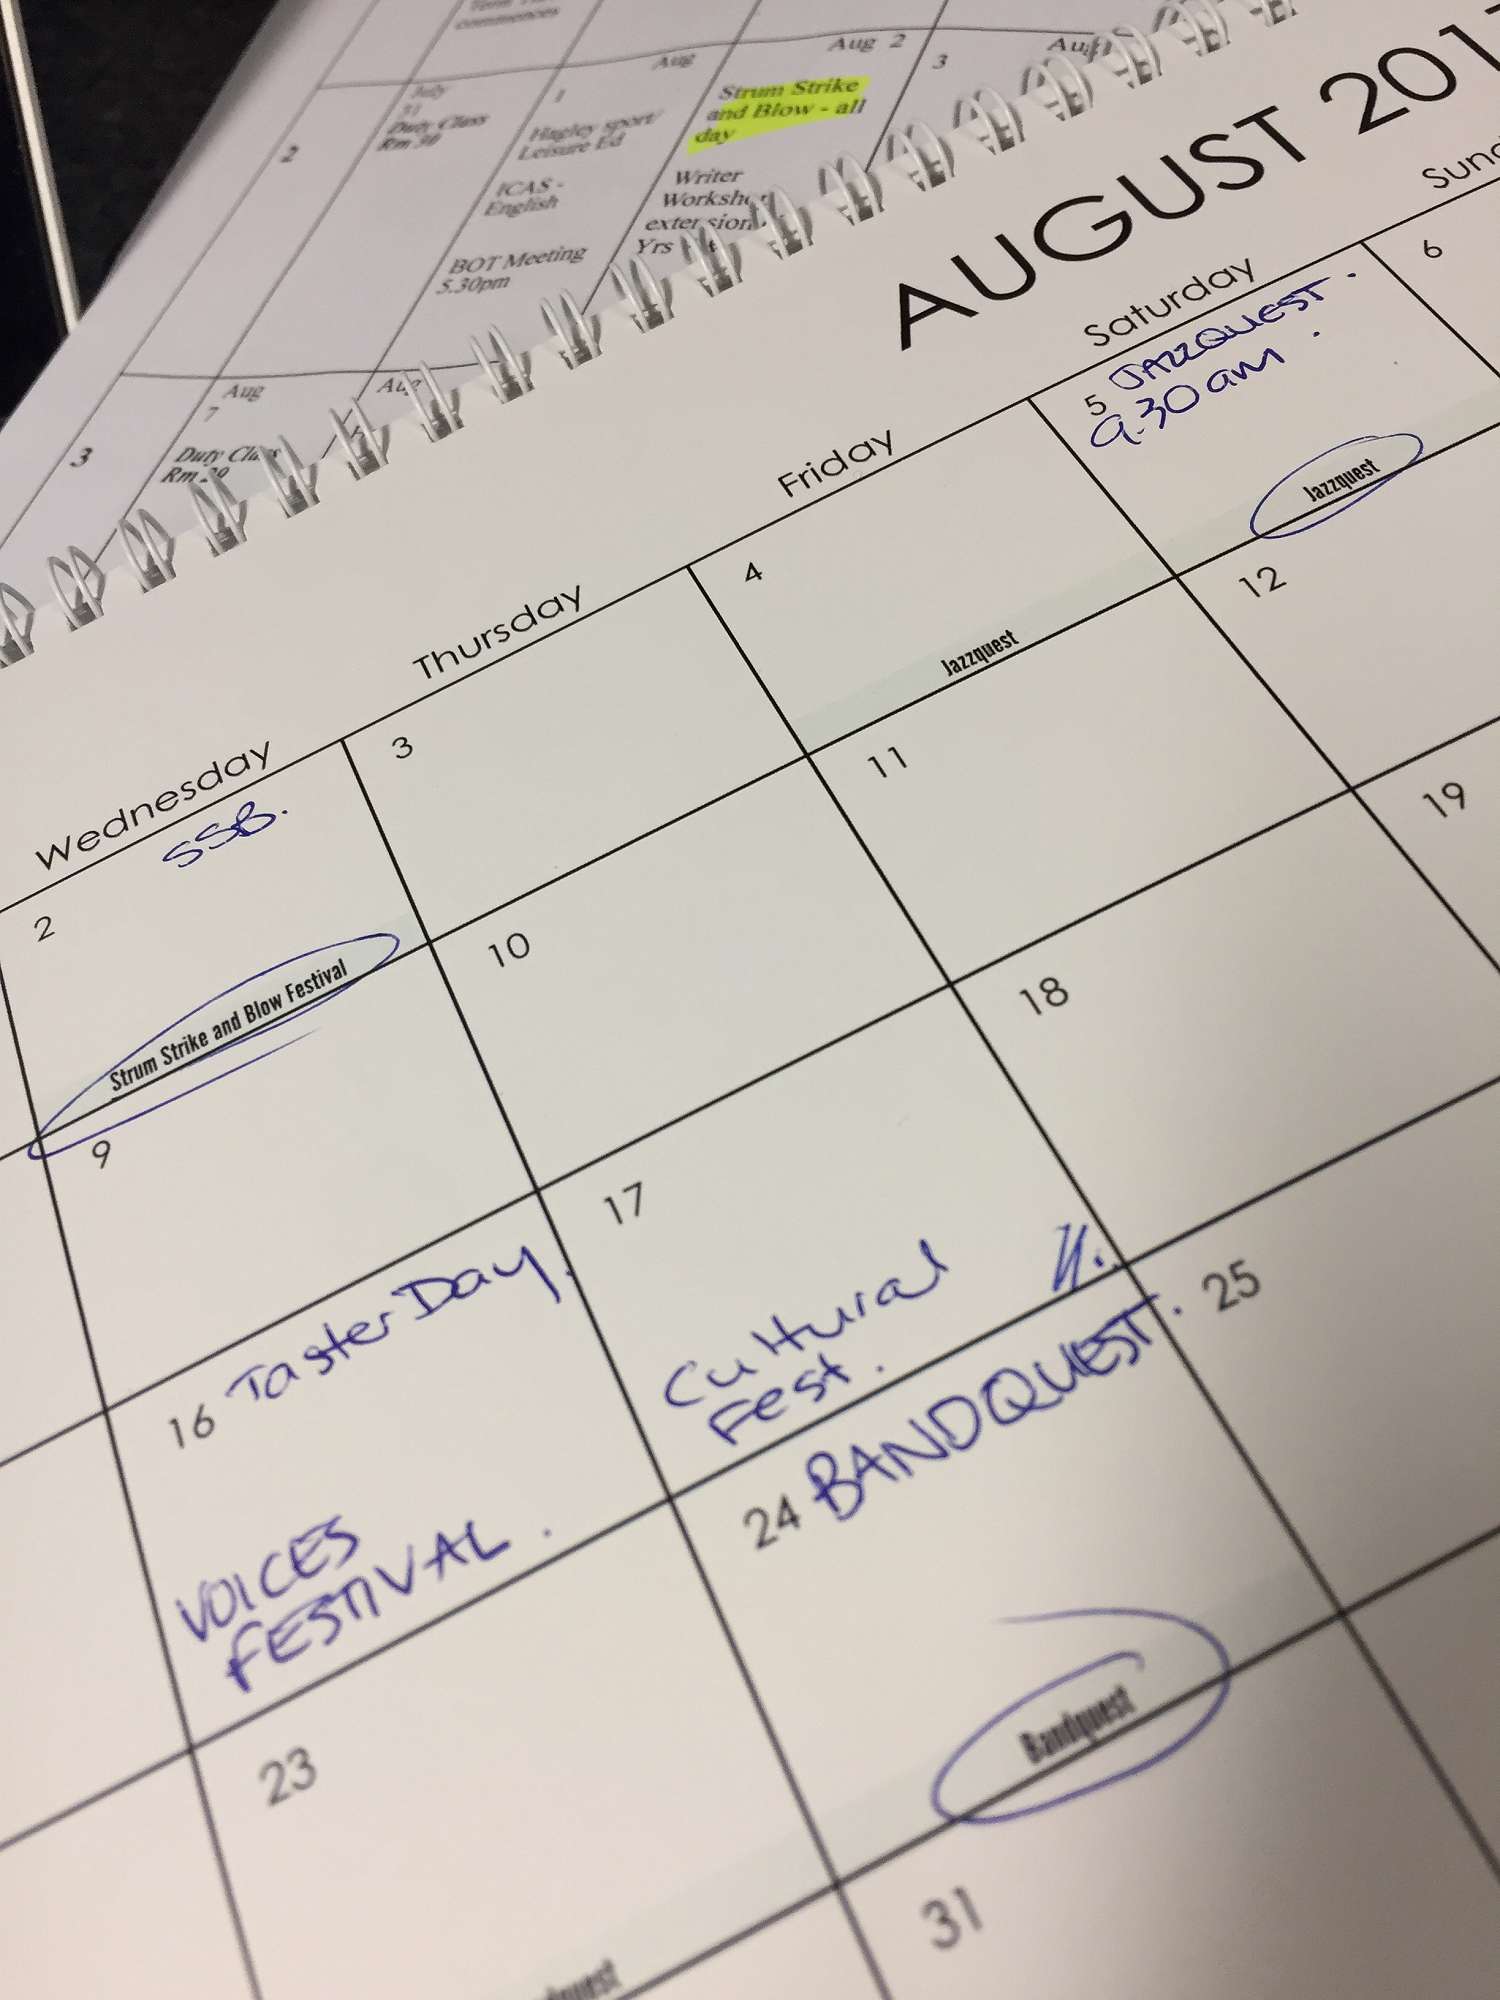 commences
Aug
Aug 2
July
31
Duty Class
Rm 30
2
1
Hagley sport/
Leisure Ed
ICAS -
English
BOT Meeting
5.30pm
Strum Strike
and Blow - all
day
Writer
Workshop
extension
Yrs
3
3
Aug
7
Duty Class
Rm 29
Aug
AUGUST 201
Wednesday
Thursday
Friday
Saturday
2
SSB.
Strum Strike and Blow Festival
3
4
Jazzquest
5 JAZZQUEST.
9.30am.
Jazzquest
6
9
10
11
12
16 Taster Day.
VOICES
FESTIVAL.
17
Cultural
Fest.
18
19
23
24 BANDQUEST.
Bandquest
25
31